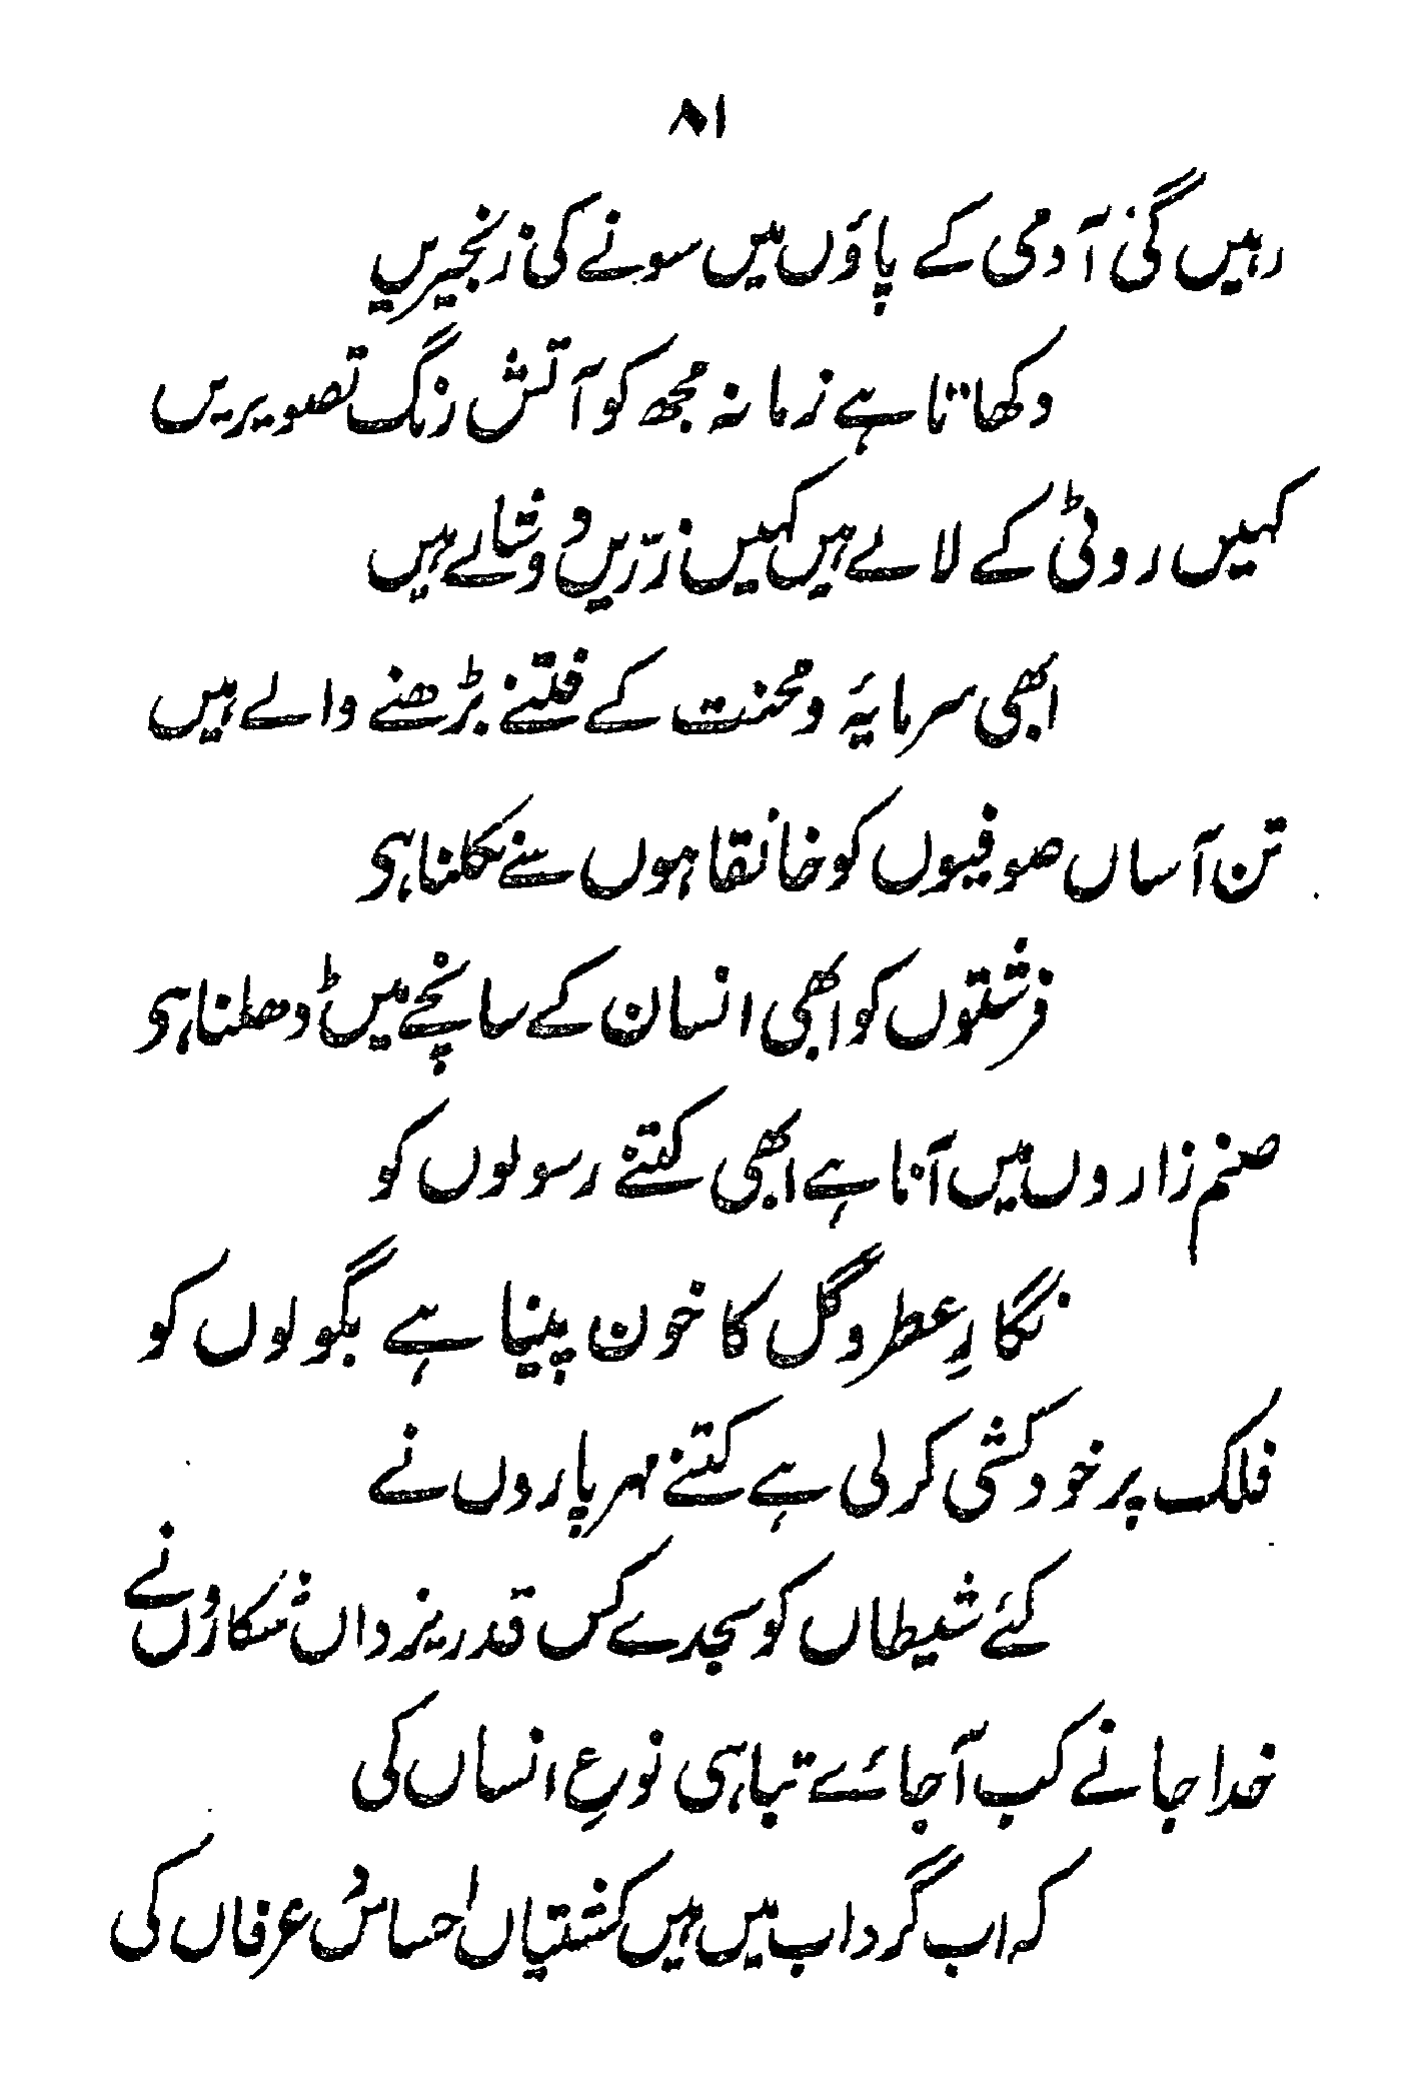 ۸۱
رہیں گی آدمی کے پاؤں میں سونے کی زنجیریں
دکھاتا ہے زمانہ مجھ کو آتش رنگ تصویریں
کہیں روٹی کے لالے ہیں کہیں زرّیں دوشالے ہیں
ابھی سرمایۂ و محنت کے فتنے بڑھنے والے ہیں
تن آساں صوفیوں کو خانقاہوں سے نکلنا ہی
فرشتوں کو ابھی انسان کے سانچے میں ڈھلنا ہی
صنم زاروں میں آنا ہے ابھی کتنے رسولوں کو
نگارِ عطر و گل کا خون پینا ہے بگولوں کو
فلک پر خودکشی کرلی ہے کتنے مہر پاروں نے
کئے شیطاں کو سجدے کس قدر یزداں شکاروں نے
خدا جانے کب آجائے تباہی نوعِ انساں کی
کہ اب گرداب میں ہیں کشتیاں احساس و عرفاں کی